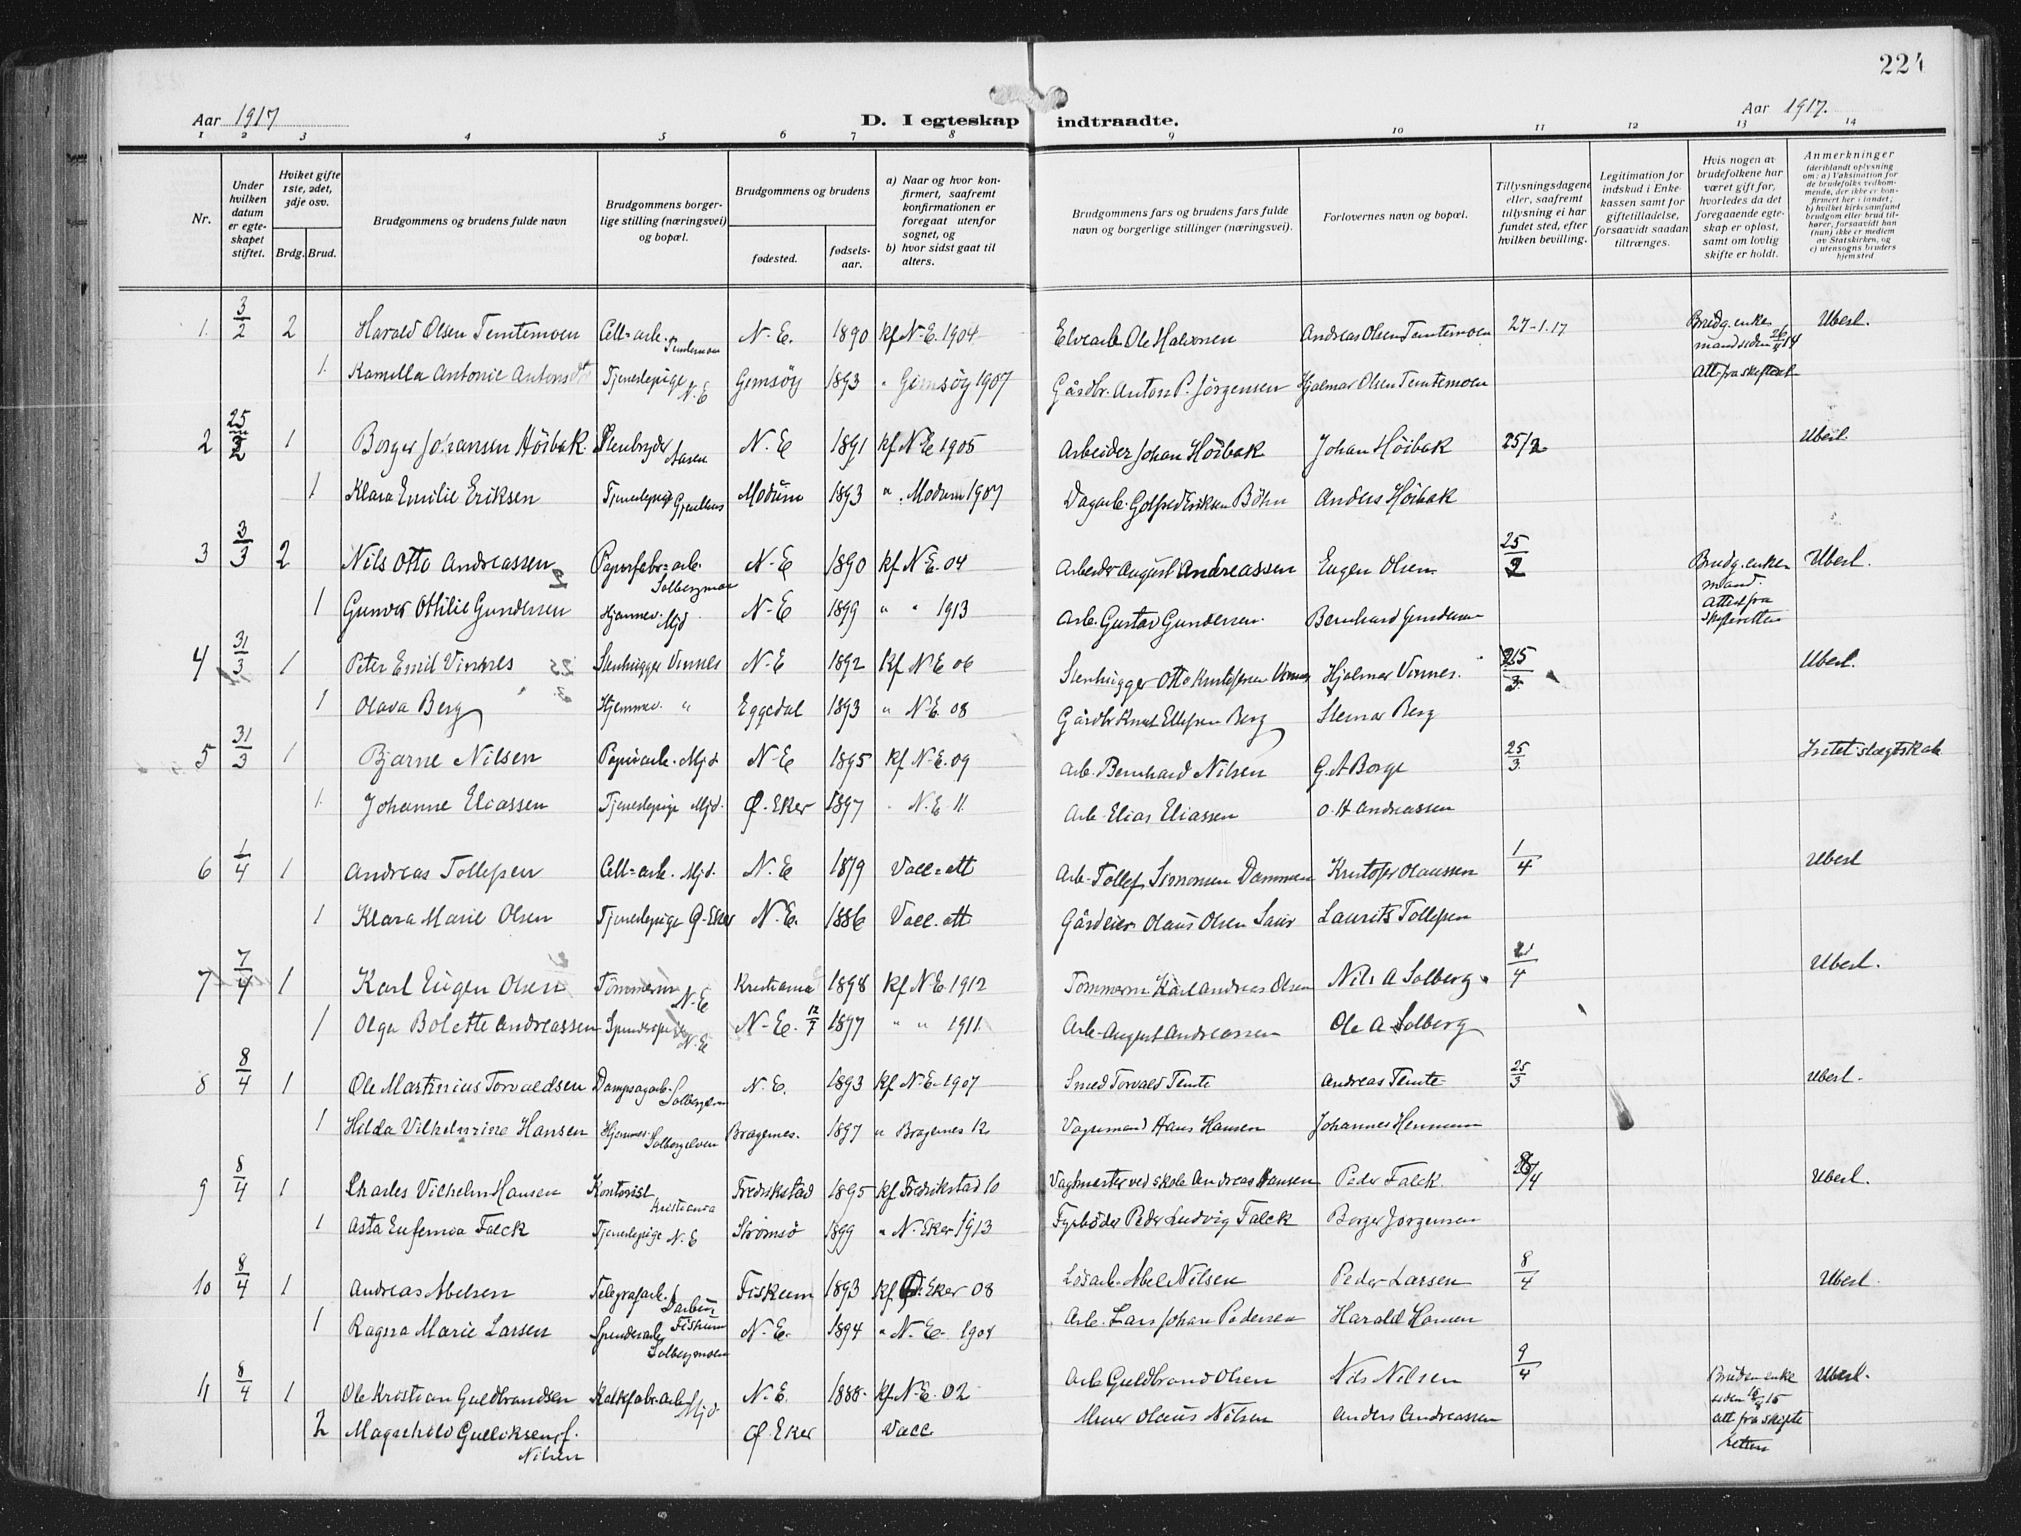 224
Aar 1917 D. I egteskap indtraadte. Aar 1917.
1 2 3 4 5 6 7 8 9 10 11 12 13 14
Nr.
Under hvilken datum er egteskapet stiftet.
Hviket gifte 1ste, 2det, 3dje osv.
Brdg. Brud.
Brudgommens og brudens fulde navn
Brudgommens borgerlige stilling (næringsvei) og bopæl.
Brudgommens og brudens
fødested.
fødselsaar.
a) Naar og hvor konfirmert, saafremt konfirmationen er foregaat utenfor sognet, og
b) hvor sidst gaat til alters.
Brudgommens fars og brudens fars fulde navn og borgerlige stillinger (næringsvei).
Forlovernes navn og bopæl.
Tillysningsdagene eller, saafremt tillysning ei har fundet sted, efter hvilken bevilling.
Legitimation for indskud i Enkekassen samt for giftetilladelse, forsaavidt saadan tiltrænges.
Hvis nogen av brudefolkene har været gift før, hvorledes da det foregaaende egteskap er opløst, samt om lovlig skifte er holdt.
Anmerkninger
(deriblandt oplysning om: a) Vaksination for de brudefolks vedkommende, der ikke er konfirmert her i landet; b) hvilket kirkesamfund brudgom eller brud tilhører, forsaavidt han (hun) ikke er medlem av Statskirken, og c) utensogns bruders hjemsted
1. 3/2 2 Harald Olsen Temtemoen Cell=arb. Temtemoen N-E. 1890 kf N-E. 1904 Elvearb Ole Halvorsen Andreas Olsen Temtemoen 27-1.17 Brudg. enkemand siden 26/4 14 Ubesl.
1. Kamilla Antonie Antonsdtr Tjenestepige N.E Gimsøy 1893 " Gimsøy 1907 Gårdbr. Anton P. Jørgensen Hjalmar Olsen Temtemoen Att fra skifterek
2 25/2 1 Borger Johansen Høibak. Stenbryder Aasen N.E 1891 kf N-E 1905 Arbeider Johan Høibak Johan Høibak 25/2 Ubesl.
1 Klara Emilie Eriksen Tjenestepige Modum 1893 " Modum 1907 Dagarb. Golfred Eriksen Böhn Anders Høibak
3 3/3 2 Nils Otto Andreassen Papirfabr=arb. Solbergmoen N-E 1890 kf N-E. 04 Arbeider August Andreassen Eugen Olsen 25/2 Brudg. enkemand. Ubesl.
1 Gunvor Ottilie Gundersen Hjemmev. Mjd N-E 1899 " " 1913 Arb. Gustav Gundersen. Bernhard Gundersen Attest fra skifteretten
4 31/3 1 Peter Emil Vinnes Stenhugger Vinnes N-E 1892 kf N.E 06 Stenhugger Otto Kristofersen Vinnes Hjalmar Vinnes. 25/3 Ubesl.
1 Olava Berg Hjemmev. " Eggedal 1893 " N.E. 08 Gårdbr Knut Ellefsen Berg Steinar Berg
5 31/3 1 Bjarne Nilsen Papirarb. Mjd. N-E 1895 kf N.E. 09 Arb. Bernhard Nilsen G. A Borge 25/3 Intet slægtskab
1. Johanne Eliassen Tjenestepige Mjd. Ø. Eker 1897 " N.E 11. Arb. Elias Eliassen O. H Andreassen
6 1/4 1 Andreas Tollefsen Cell=arb. Mjd. N.E 1879 Vacc=att Arb. Tollef Simonsen Dammen Kristofer Olaussen 1/4 Ubesl
1 Klara Marie Olsen Tjenestepige Ø-Eker N.E. 1886 Vacc. att Gårdeier Olaus Olsen Saur Laurits Tollefsen
7 7/4 1 Karl Eugen Olsen Tømmerm N.E Kristiania 1898 kf N.E. 1912 Tømmerm Karl Andreas Olsen Nils A Solberg 21/4 Ubesl.
1 Olga Bolette Andreassen N.E N-E. 12/7 1897 " " 1911. Arb. August Andreassen Ole A Solberg
8 8/4 1 Ole Martinius Torvaldsen Dampsagarb. N.E. 1893 kf N.E. 1907 Smed Torvald Temte Andreas Temte 25/3 Ubesl.
1 Hilda Vilhelmine Hansen Hjemmev. Solbergelven Bragernes. 1897 " Bragernes 12 Hans Hansen Johannes Hennum
9 8/4 1 Charles Vilhelm Hansen Kontorist Kristiania Fredrikstad 1895 kf Fredrikstad 10 Vagtmester ved skole Andreas Hansen Peder Falck. Ubesl.
1 Asta Eufemia Falck Tjenestepige N.E Strømsø 1899 " N. Eker 1913 Fyrbøder Peder Ludvig Falck Borger Jørgensen
10 8/4 1 Andreas Abelsen Telegrafarb. Darbu Fiskum Fiskum 1893 kf Ø. Eker 08 Løsarb. Abel Nilsen Peder Larsen 8/4 Ubesl.
1 Ragna Marie Larsen Solbergmoen N.E. 1894 " N. E. Arb. Lars Johan Pedersen Harald Hansen
11 8/4 1 Ole Kristian Guldbrandsen Kalkfabr=arb Mjd. N.E. 1888. kf N.E. 02 Arb Guldbrand Olsen Nils Nilsen 9/4 Bruden enke siden 15 Ubesl.
2 Magnhild Gulliksen f. Nilsen Ø. Eker Vacc. Murer Olaus Nilsen Anders Andreassen att fra skifteretten